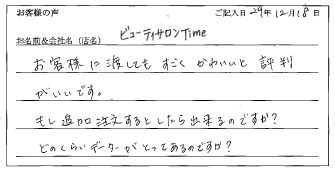 お客様の声 ご記入日 29年12月18日
お名前&会社名（店名） ビューティサロンTime
お客様に渡しても すごく かわいいと 評判
がいいです。
もし追加注文するとしたら出来るのですか?
どのくらいデーターがとってあるのですか?